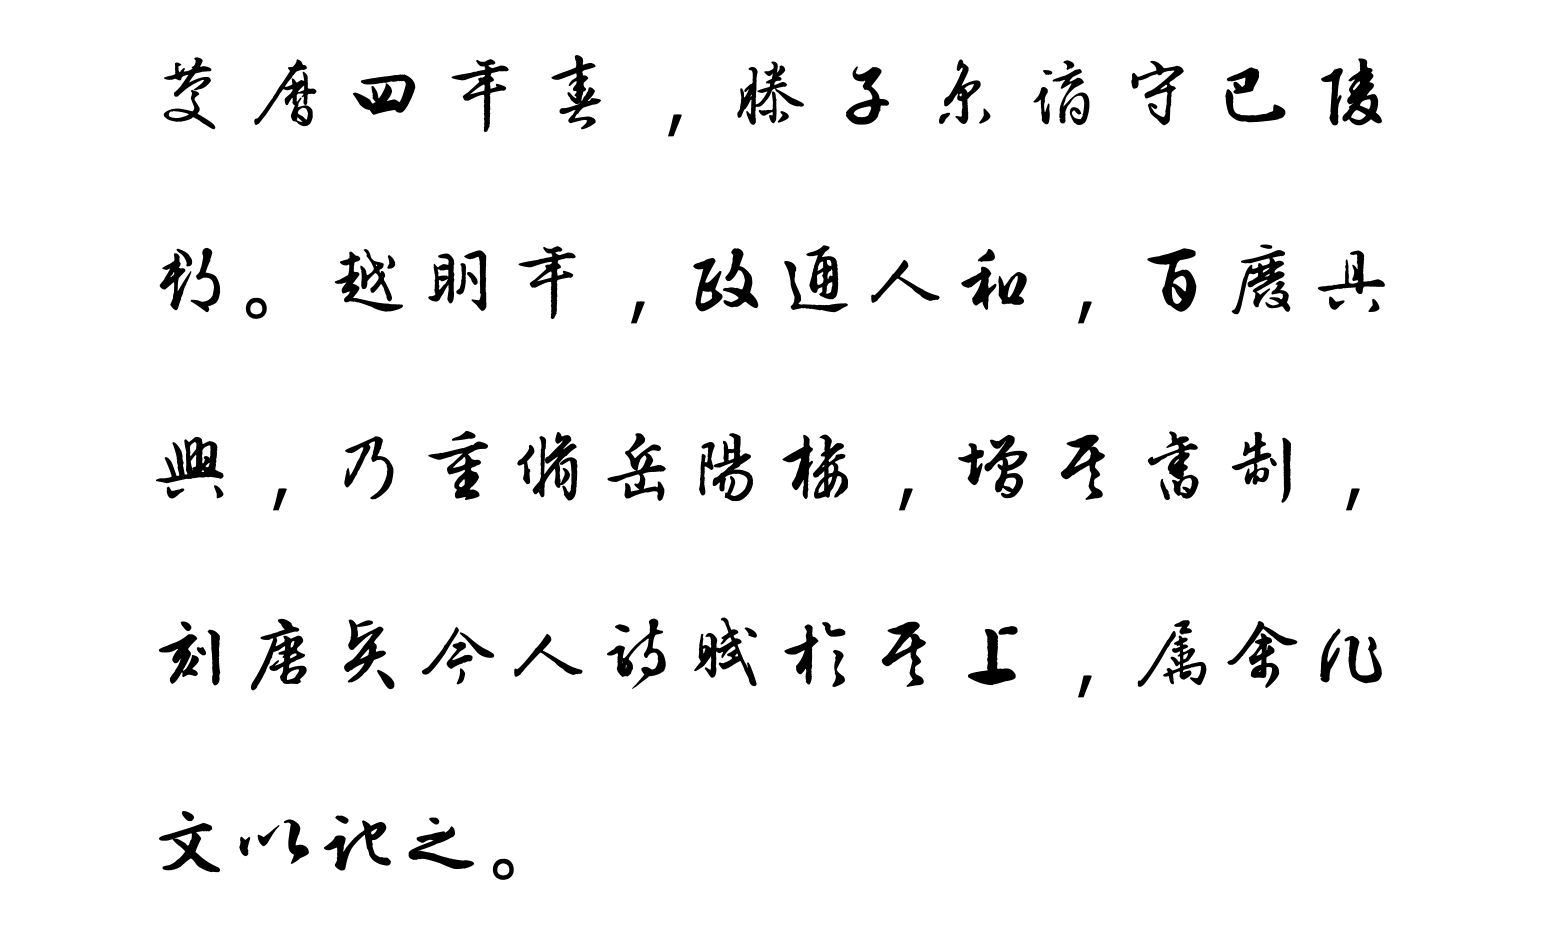 慶曆四年春，滕子京謫守巴陵
郡。越明年，政通人和，百廢具
興，乃重脩岳陽樓，增其舊制，
刻唐賢今人詩賦於其上，屬余作
文以記之。